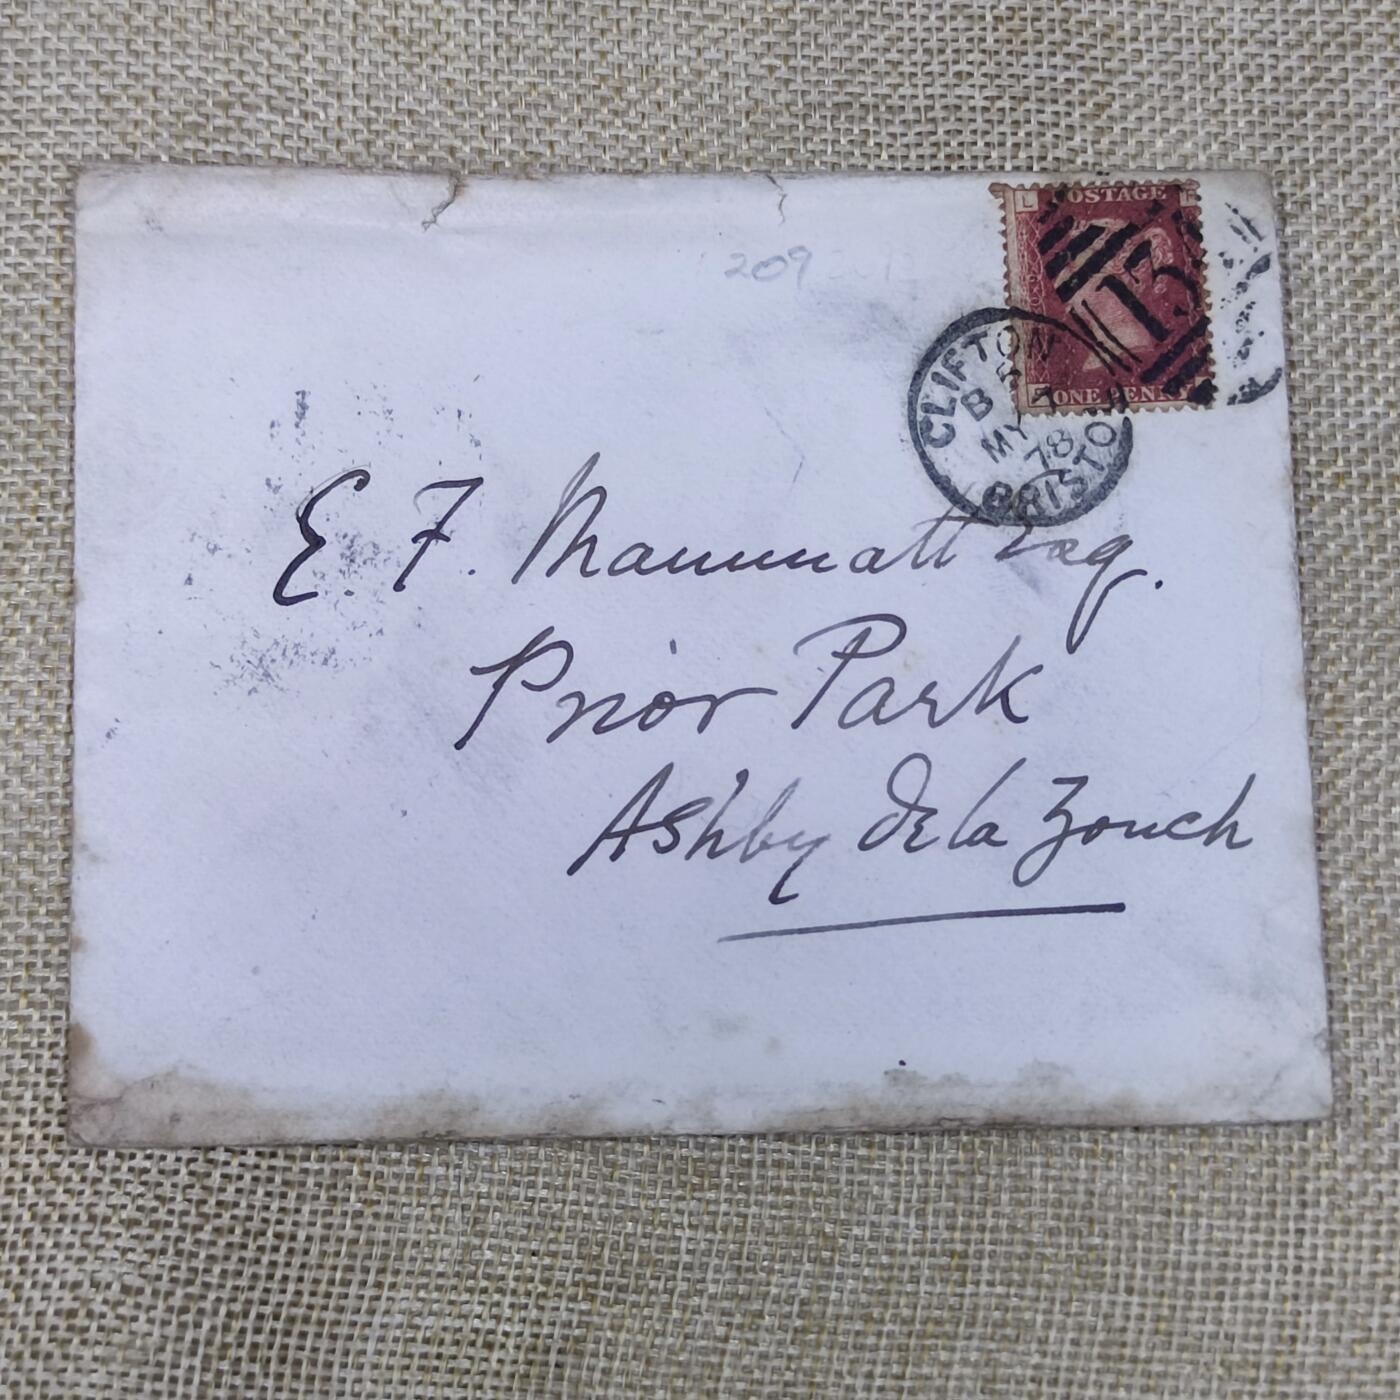 209
L POSTAGE
13
ONE PENNY
CLIFTON
B
MY 7
78
BRISTOL
E. F. Mammatt Esq.
Prior Park
Ashby de la Zouch